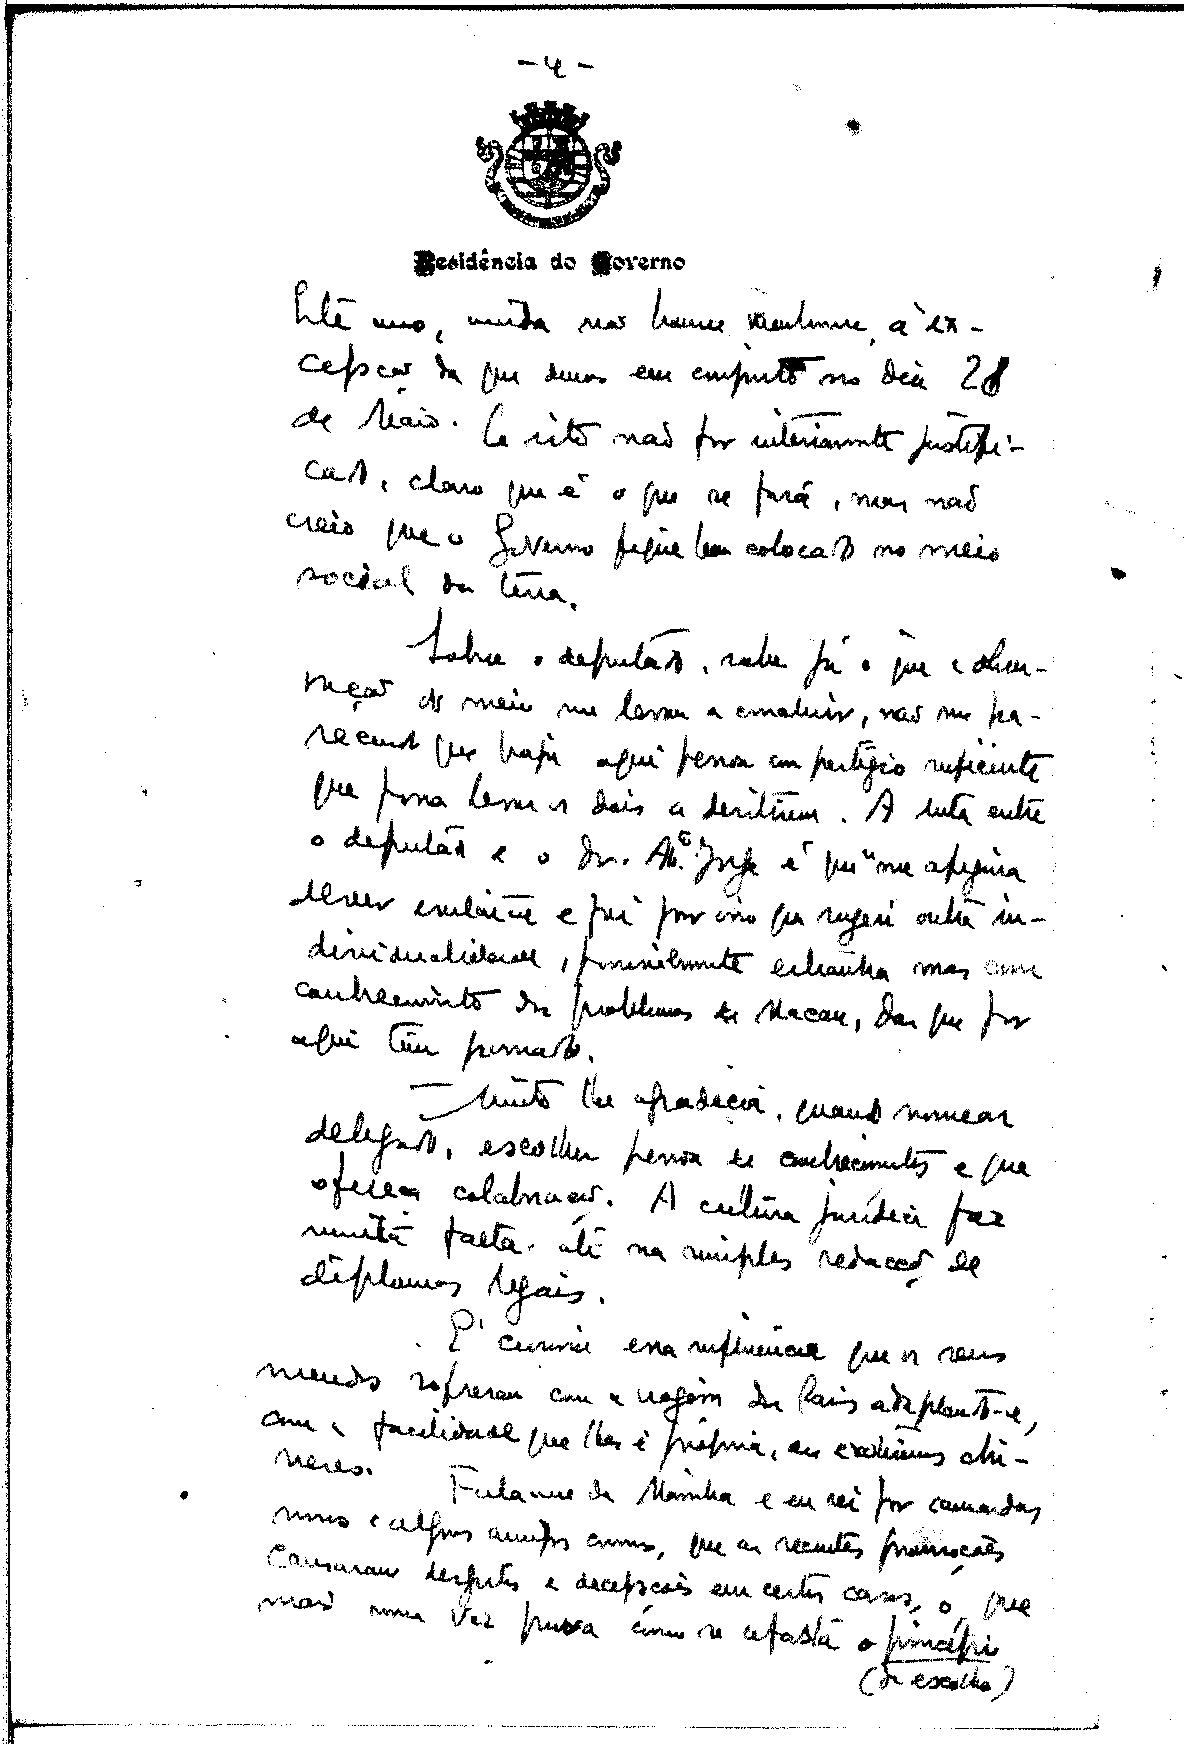 - 4 -
Residência do Governo
Este ano, ainda não houve nenhuma, à ex-
cepção da que demos em conjunto no dia 28
de Maio. Se isto não for inteiramente justifi-
cado, claro que é o que se fará, mas não
creio que o Governo fique bem colocado no meio
social da terra.
Sobre o deputado, sabe já o que a obser-
vação do meio me levou a concluir, não me pa-
recendo que haja aqui pessoa com prestígio suficiente
que possa levar os dois a desistirem. A luta entre
o deputado e o Dr. Ad.º Jorge é que me afigura
dever evitar-se e foi por isso que sugeri outra in-
dividualidade, possivelmente estranha mas com
conhecimento dos problemas de Macau, das que por
aqui têm passado.
Muito lhe agradecia, quando nomear
delegado, escolher pessoa de conhecimentos e que
ofereça colaboração. A cultura jurídica faz
muita falta até na simples redacção de
diplomas legais.
É curiosa essa influência que os seus
com a viagem de Paris adaptando-se,
com a facilidade que lhes é própria, aos
neses. Falam-me da Marinha e eu sei por camaradas
meus e alguns amigos comuns, que as recentes promoções
causaram desgostos e decepções em certos casos, o que
mais uma vez prova como se afasta o princípio
(de escolha)